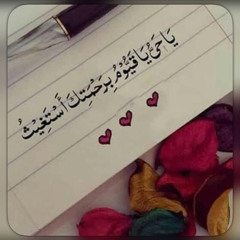 يَا حَيُّ يَا قَيُّوْمُ بِرَحْمَتِكَ أَسْتَغِيْثُ